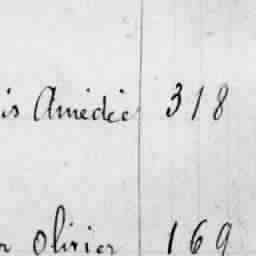 is Amédée 318
Olivier 169